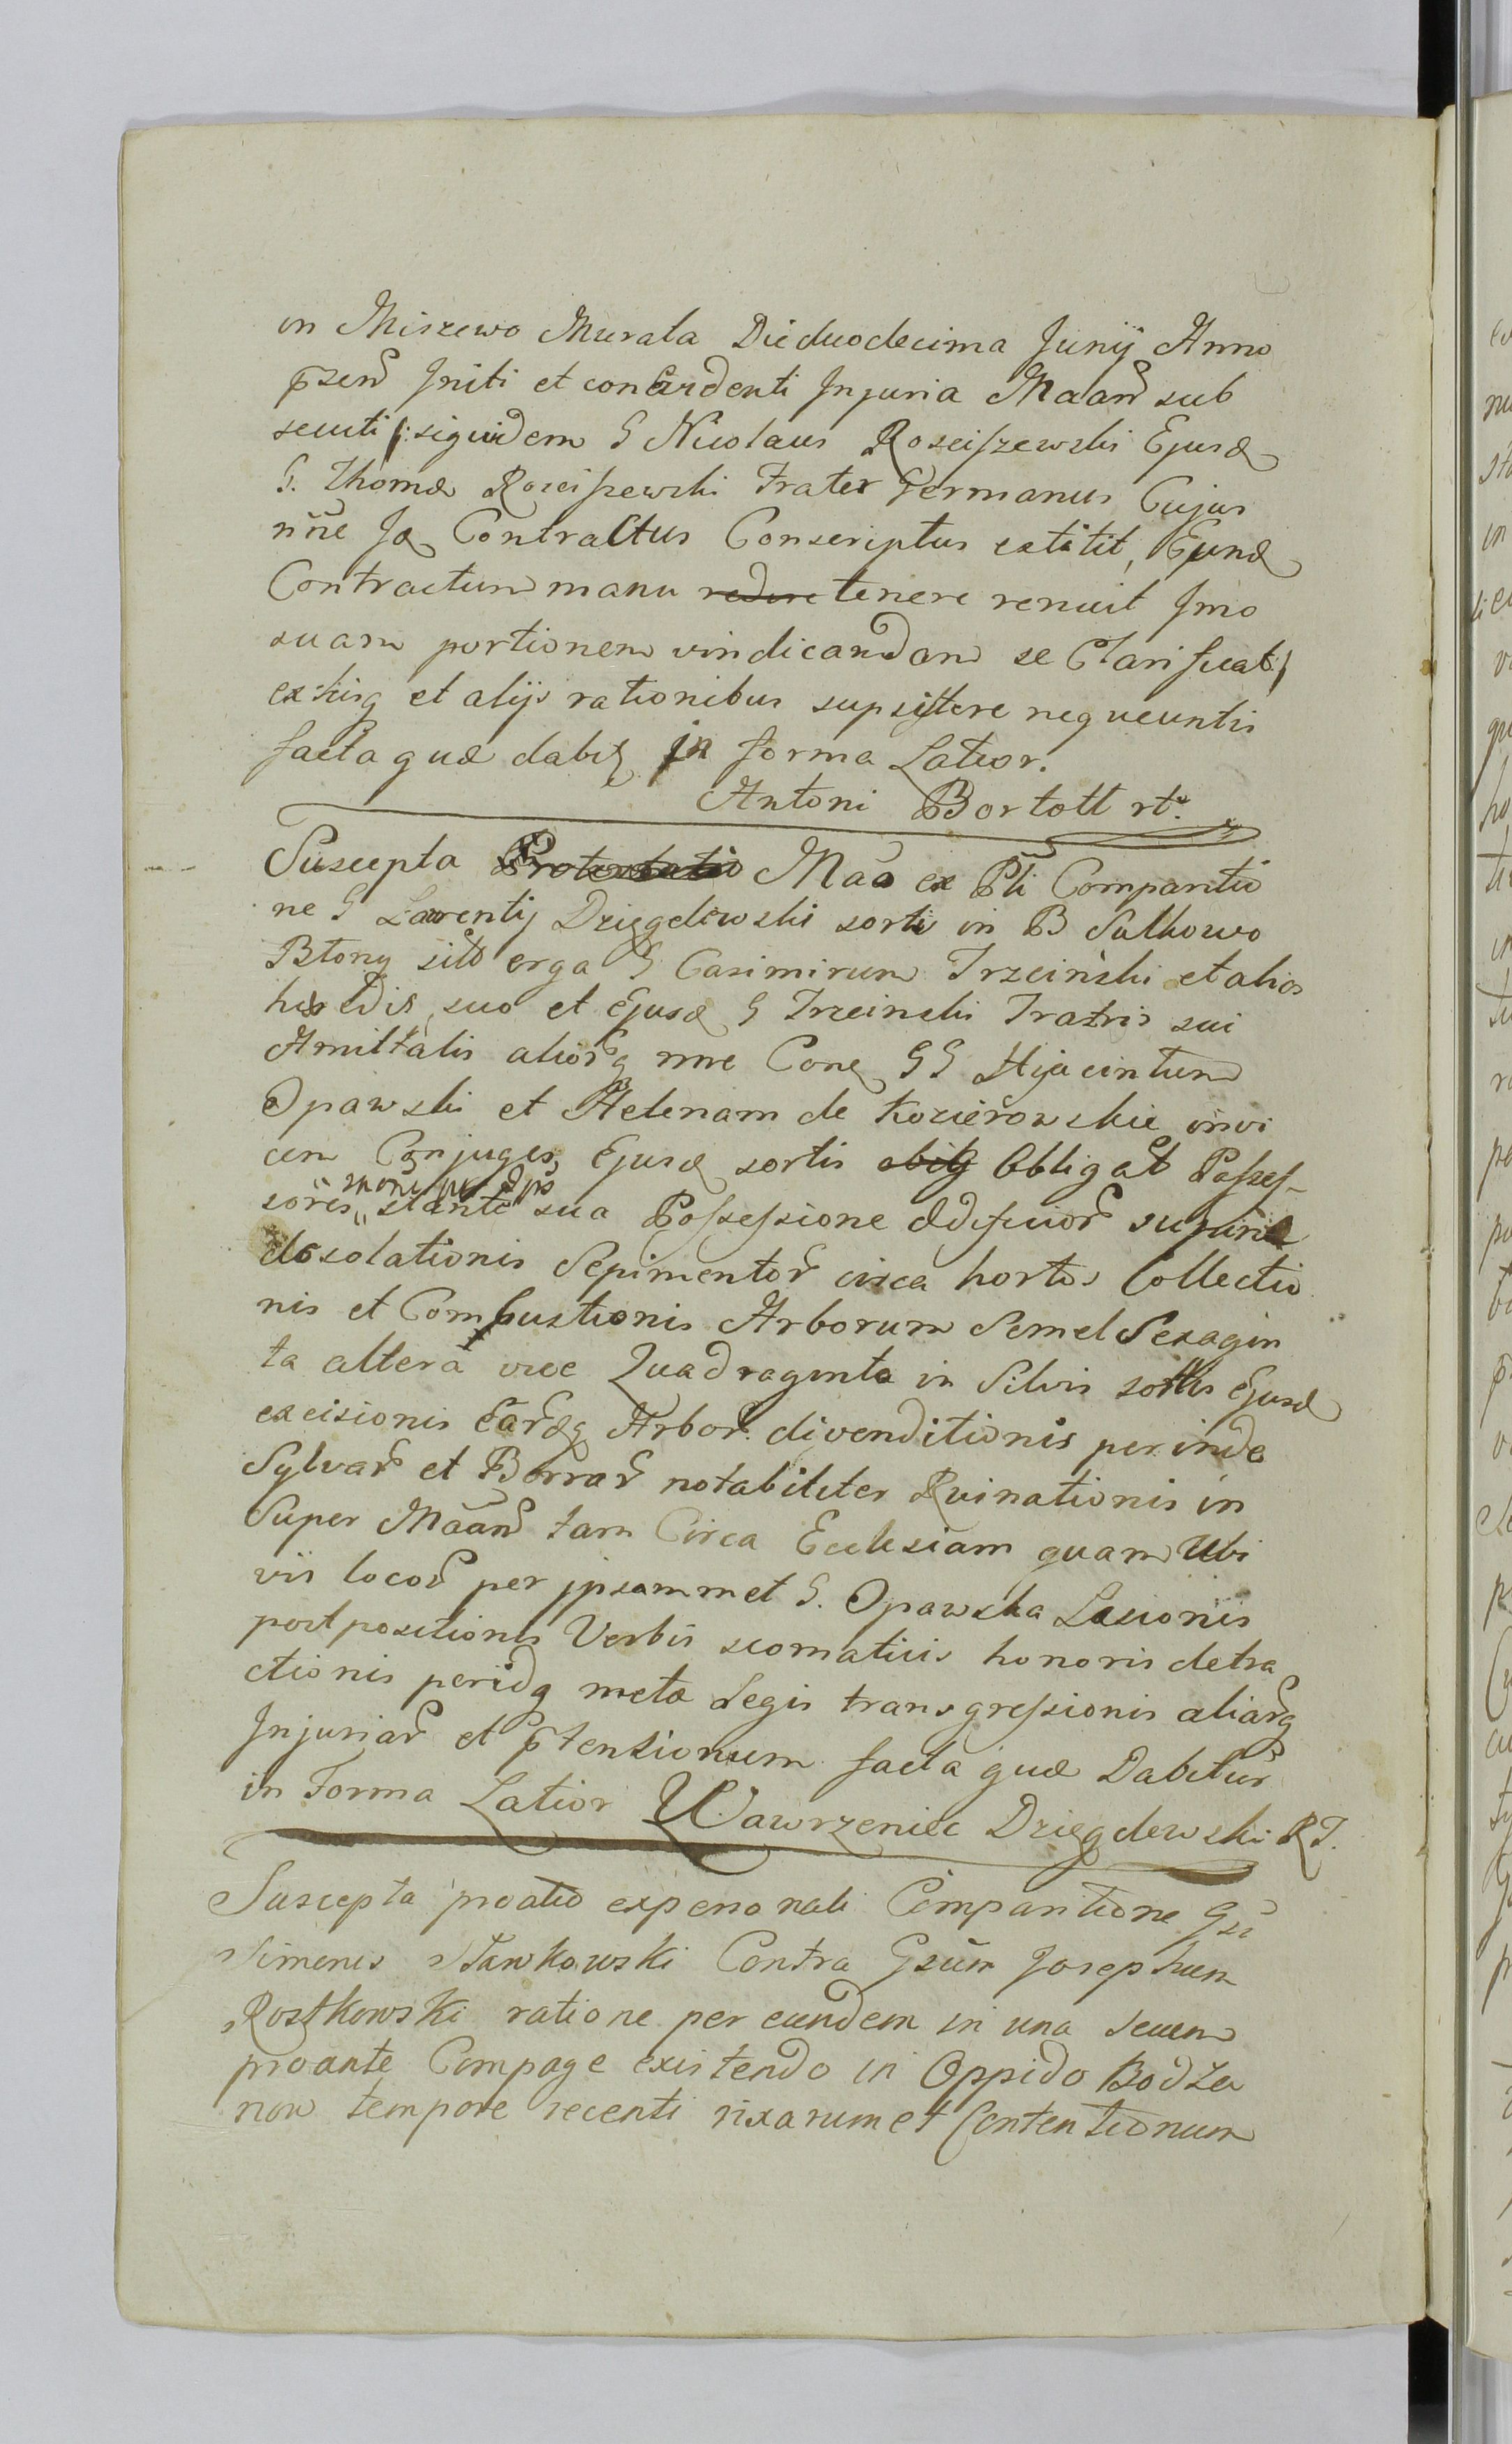 in Miszewo Murata Die duodecima Junij Anno
pzen Initi et contardenti Injuria Maan sub
secuti /: siquidem G Nicolaus Rosciszewski Ejusd
G. Thomæ Rosciszewski Frater Germanus Cujus
nne Contractus Conscriptus extitit, Eund
Contractum manu tenere renuit Imo
suam portionem vindicandam se Clarificat
ex hisq et alijs rationibus supsistere nequeuntis
facta quæ dabit in forma Latior.
Antoni Bortott rt.
Suscepta Protestatio Maa ex Pli Comparitio
ne G Laurentij Dzięgelewski sortis in B Sulkowo
Btony sitt erga G Casimirum Trzcinski et alios
hæredis, suo et Ejusd G Trzcinski Fratris sui
Amittalis aliorq nne Conq GG Hijacintum
Opawski et Helenam de Kozierowskie invi
cem Conjuges Ejusd sortis Obligat Possess
sores stante sua Possessione Ædificior
desolationis Sepimentor circa hortos Collectio
nis et Combustionis Arborum Semel Sexagin
ta altera vice Quadraginta in Silvis sortis Ejusd
excisionis Earq Arbor. divenditionis perinde
Sylvar et Borrar notabiliter Ruinationis in
Super Maan tam Circa Ecclesiam quam Ubi
vis locor per ipsammet G. Opawska Læsionis
postpositionis Verbis scomaticis honoris detra
ctionis peridq metæ Legis transgressionis aliarq
Injuriar et ptensionum facta quæ Dabitur
in Forma Latior Wawrzeniec Dzięgelewski RT.
Suscepta proatio expersonali Comparitione Gsi
Simonis Stawkowski Contra Gsum Josephum
Rostkowski ratione per eundem in una secum
proante Compage existendo in Oppido Bodza
now tempore recenti rixarum et Contentionum